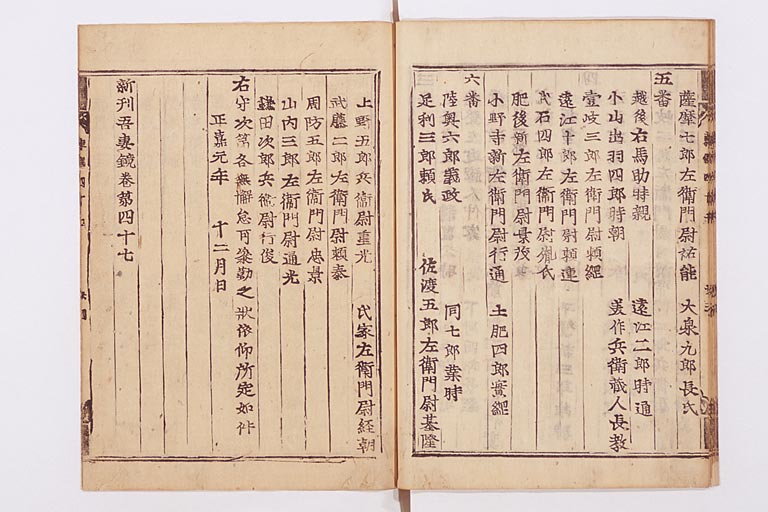 薩摩七郎左衛門尉祐能　大泉九郎長氏
五番
越後右馬助時親　遠江二郎時通
小山出羽四郎時朝　美作兵衛蔵人長教
壹岐三郎左衛門尉頼綱
遠江十郎左衛門尉頼連
武石四郎左衛門尉胤氏
肥後新左衛門尉景茂
小野寺新左衛門尉行通　土肥四郎實綱
六番
陸奥六郎義政　同七郎業時
足利三郎頼氏　佐渡五郎左衛門尉基隆
上野五郎兵衛尉重光　氏家左衛門尉経朝
武藤二郎左衛門尉頼泰
周防五郎左衛門尉忠景
山内三郎左衛門尉通光
鎌田次郎兵衛尉行俊
右守次第各無懈怠可令勤之状依仰所定如件
正嘉元年　十二月日
新刊吾妻鏡巻第四十七